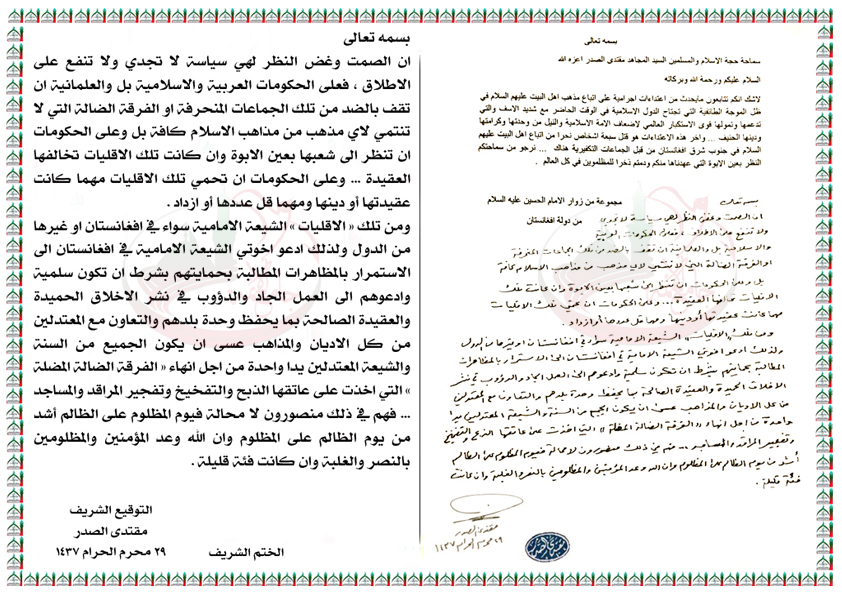 بسمه تعالى
ان الصمت وغض النظر لهي سياسة لا تجدي ولا تنفع على
الاطلاق ، فعلى الحكومات العربية والاسلامية بل والعلمانية ان
تقف بالضد من تلك الجماعات المنحرفة او الفرقة الضالة التي لا
تنتمي لاي مذهب من مذاهب الاسلام كافة بل وعلى الحكومات
ان تنظر الى شعبها بعين الابوة وان كانت تلك الاقليات تخالفها
العقيدة ... وعلى الحكومات ان تحمي تلك الاقليات مهما كانت
عقيدتها أو دينها ومهما قل عددها أو ازداد .
ومن تلك « الاقليات » الشيعة الامامية سواء في افغانستان او غيرها
من الدول ولذلك ادعو اخوتي الشيعة الامامية في افغانستان الى
الاستمرار بالمظاهرات المطالبة بحمايتهم بشرط ان تكون سلمية
وادعوهم الى العمل الجاد والدؤوب في نشر الاخلاق الحميدة
والعقيدة الصالحة بما يحفظ وحدة بلدهم والتعاون مع المعتدلين
من كل الاديان والمذاهب عسى ان يكون الجميع من السنة
والشيعة المعتدلين يدا واحدة من اجل انهاء « الفرقة الضالة المضلة
» التي اخذت على عاتقها الذبح والتفخيخ وتفجير المراقد والمساجد
... فهم في ذلك منصورون لا محالة فيوم المظلوم على الظالم أشد
من يوم الظالم على المظلوم وان الله وعد المؤمنين والمظلومين
بالنصر والغلبة وان كانت فئة قليلة .
التوقيع الشريف
مقتدى الصدر
٢٩ محرم الحرام ١٤٣٧
الختم الشريف
بسمه تعالى
سماحة حجة الاسلام والمسلمين السيد المجاهد مقتدى الصدر اعزه الله
السلام عليكم ورحمة الله وبركاته
لاشك انكم تتابعون مايحدث من اعتداءات اجرامية على اتباع مذهب اهل البيت عليهم السلام في
ظل الموجة الطائفية التي تجتاح الدول الاسلامية في الوقت الحاضر مع شديد الاسف والتي
تدعمها وتمولها قوى الاستكبار العالمي لاضعاف الامة الاسلامية والنيل من وحدتها وكرامتها
ودينها الحنيف ... واخر هذه الاعتداءات هو قتل سبعة اشخاص نحرا من اتباع اهل البيت عليهم
السلام في جنوب شرق افغانستان من قبل الجماعات التكفيرية هناك ... نرجو من سماحتكم
النظر بعين الابوة التي عهدناها منكم ودمتم ذخرا للمظلومين في كل العالم .
مجموعة من زوار الامام الحسين عليه السلام
من دولة افغانستان
بسمه تعالى
ان الصمت وغض النظر لهي سياسة لا تجدي
ولا تنفع على الاطلاق ، فعلى الحكومات العربية
والاسلامية بل والعلمانية ان تقف بالضد من تلك الجماعات المنحرفة
او الفرقة الضالة التي لا تنتمي لاي مذهب من مذاهب الاسلام كافة
بل وعلى الحكومات ان تنظر الى شعبها بعين الابوة وان كانت تلك
الاقليات تخالفها العقيدة ... وعلى الحكومات ان تحمي تلك الاقليات
مهما كانت عقيدتها أو دينها ومهما قل عددها أو ازداد .
ومن تلك « الاقليات » الشيعة الامامية سواء في افغانستان او غيرها من الدول
ولذلك ادعو اخوتي الشيعة الامامية في افغانستان الى الاستمرار بالمظاهرات
المطالبة بحمايتهم بشرط ان تكون سلمية وادعوهم الى العمل الجاد والدؤوب في نشر
الاخلاق الحميدة والعقيدة الصالحة بما يحفظ وحدة بلدهم والتعاون مع المعتدلين
من كل الاديان والمذاهب عسى ان يكون الجميع من السنة والشيعة المعتدلين يدا
واحدة من اجل انهاء « الفرقة الضالة المضلة » التي اخذت على عاتقها الذبح والتفخيخ
وتفجير المراقد والمساجد ... فهم في ذلك منصورون لا محالة فيوم المظلوم على الظالم
أشد من يوم الظالم على المظلوم وان الله وعد المؤمنين والمظلومين بالنصر والغلبة وان كانت
فئة قليلة .
مقتدى الصدر
٢٩ محرم الحرام ١٤٣٧